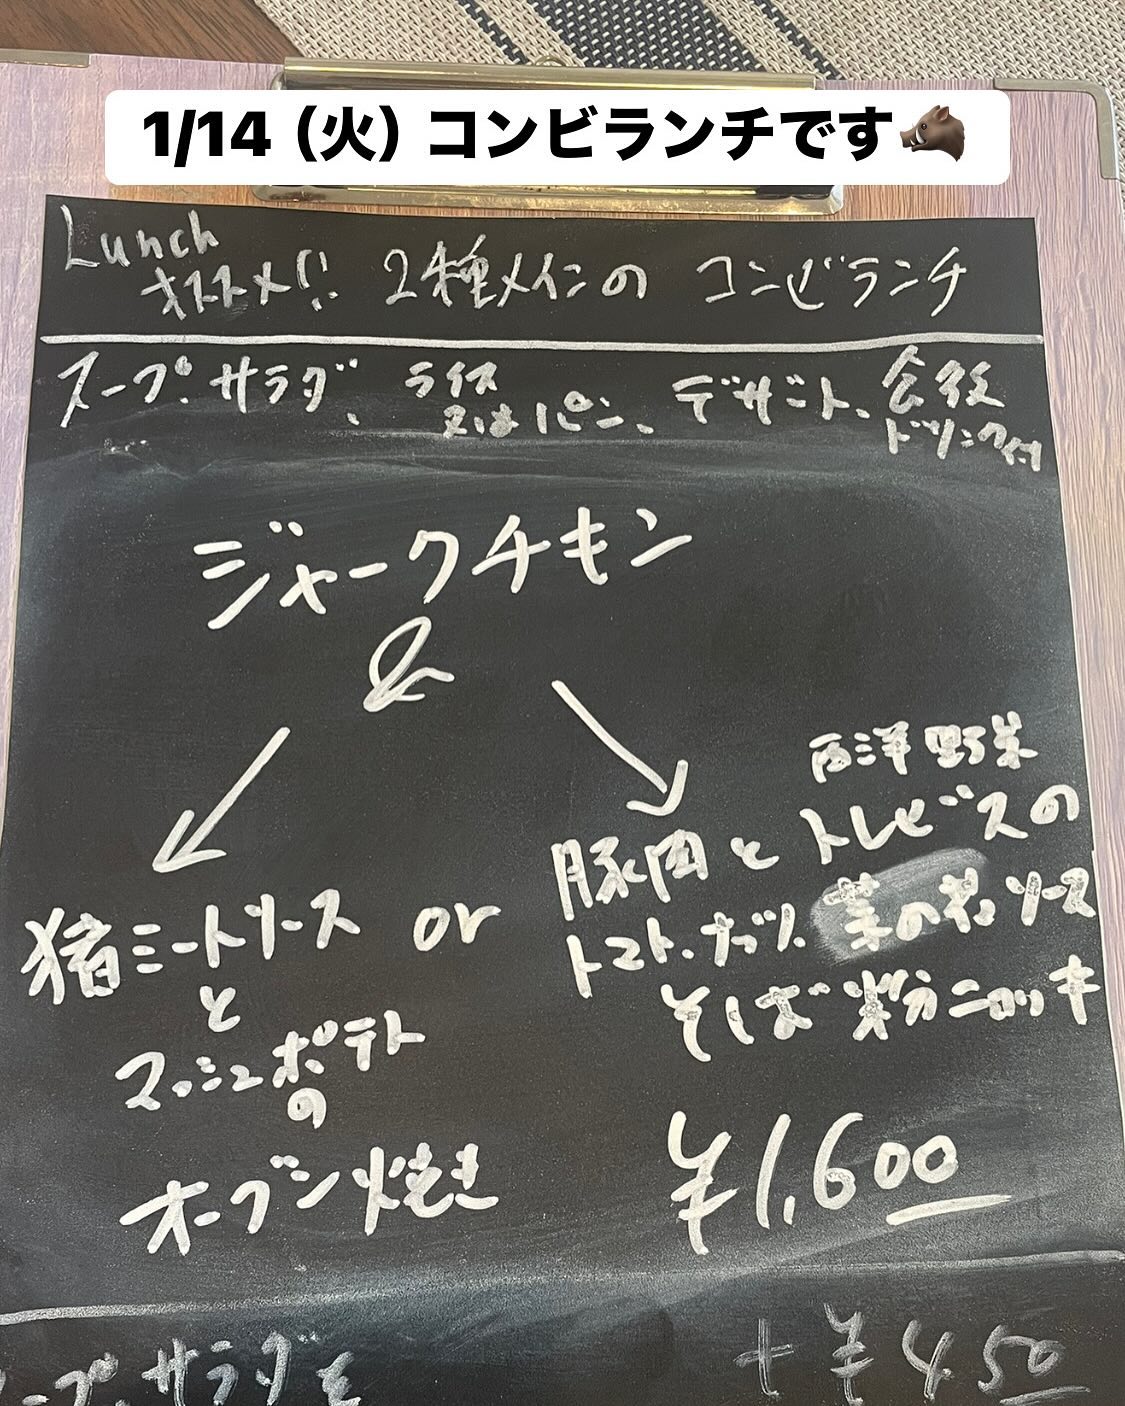 1/14（火）コンビランチです
Lunch
オススメ!! 2種メインの コンビランチ
スープ、サラダ、ライス又はパン、デザート、食後ドリンク付
ジャークチキン
&
猪ミートソース
と
マッシュポテト
の
オーブン焼き
or
西洋野菜
豚肉とトレビスの
トマト、ナッツ、菜の花ソース
そば粉ニョッキ
¥1,600
ープ、サラダを
+¥450